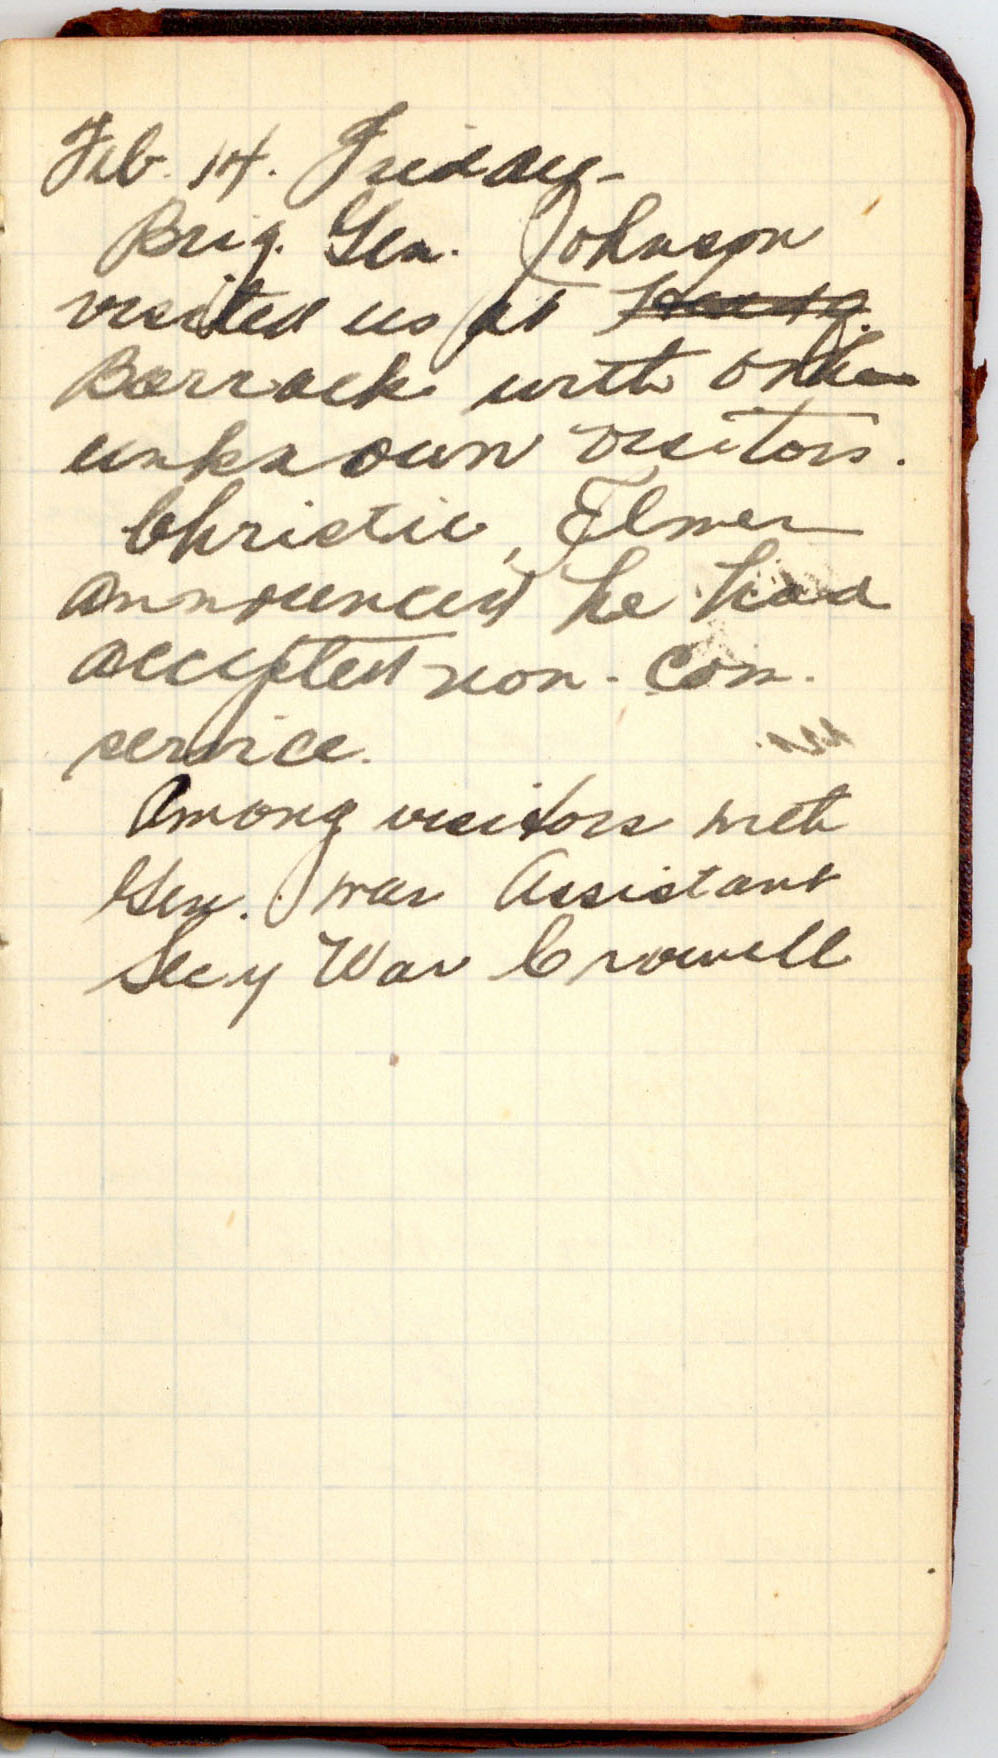 Feb. 14. Friday-
Brig. Gen. Johnson
visited us at
Barrack with other
unknown visitors.
Christie, Elmer
announced he had
accepted non-com.
service.
Among visitors with
Gen. was Assistant
Secy War Crowell